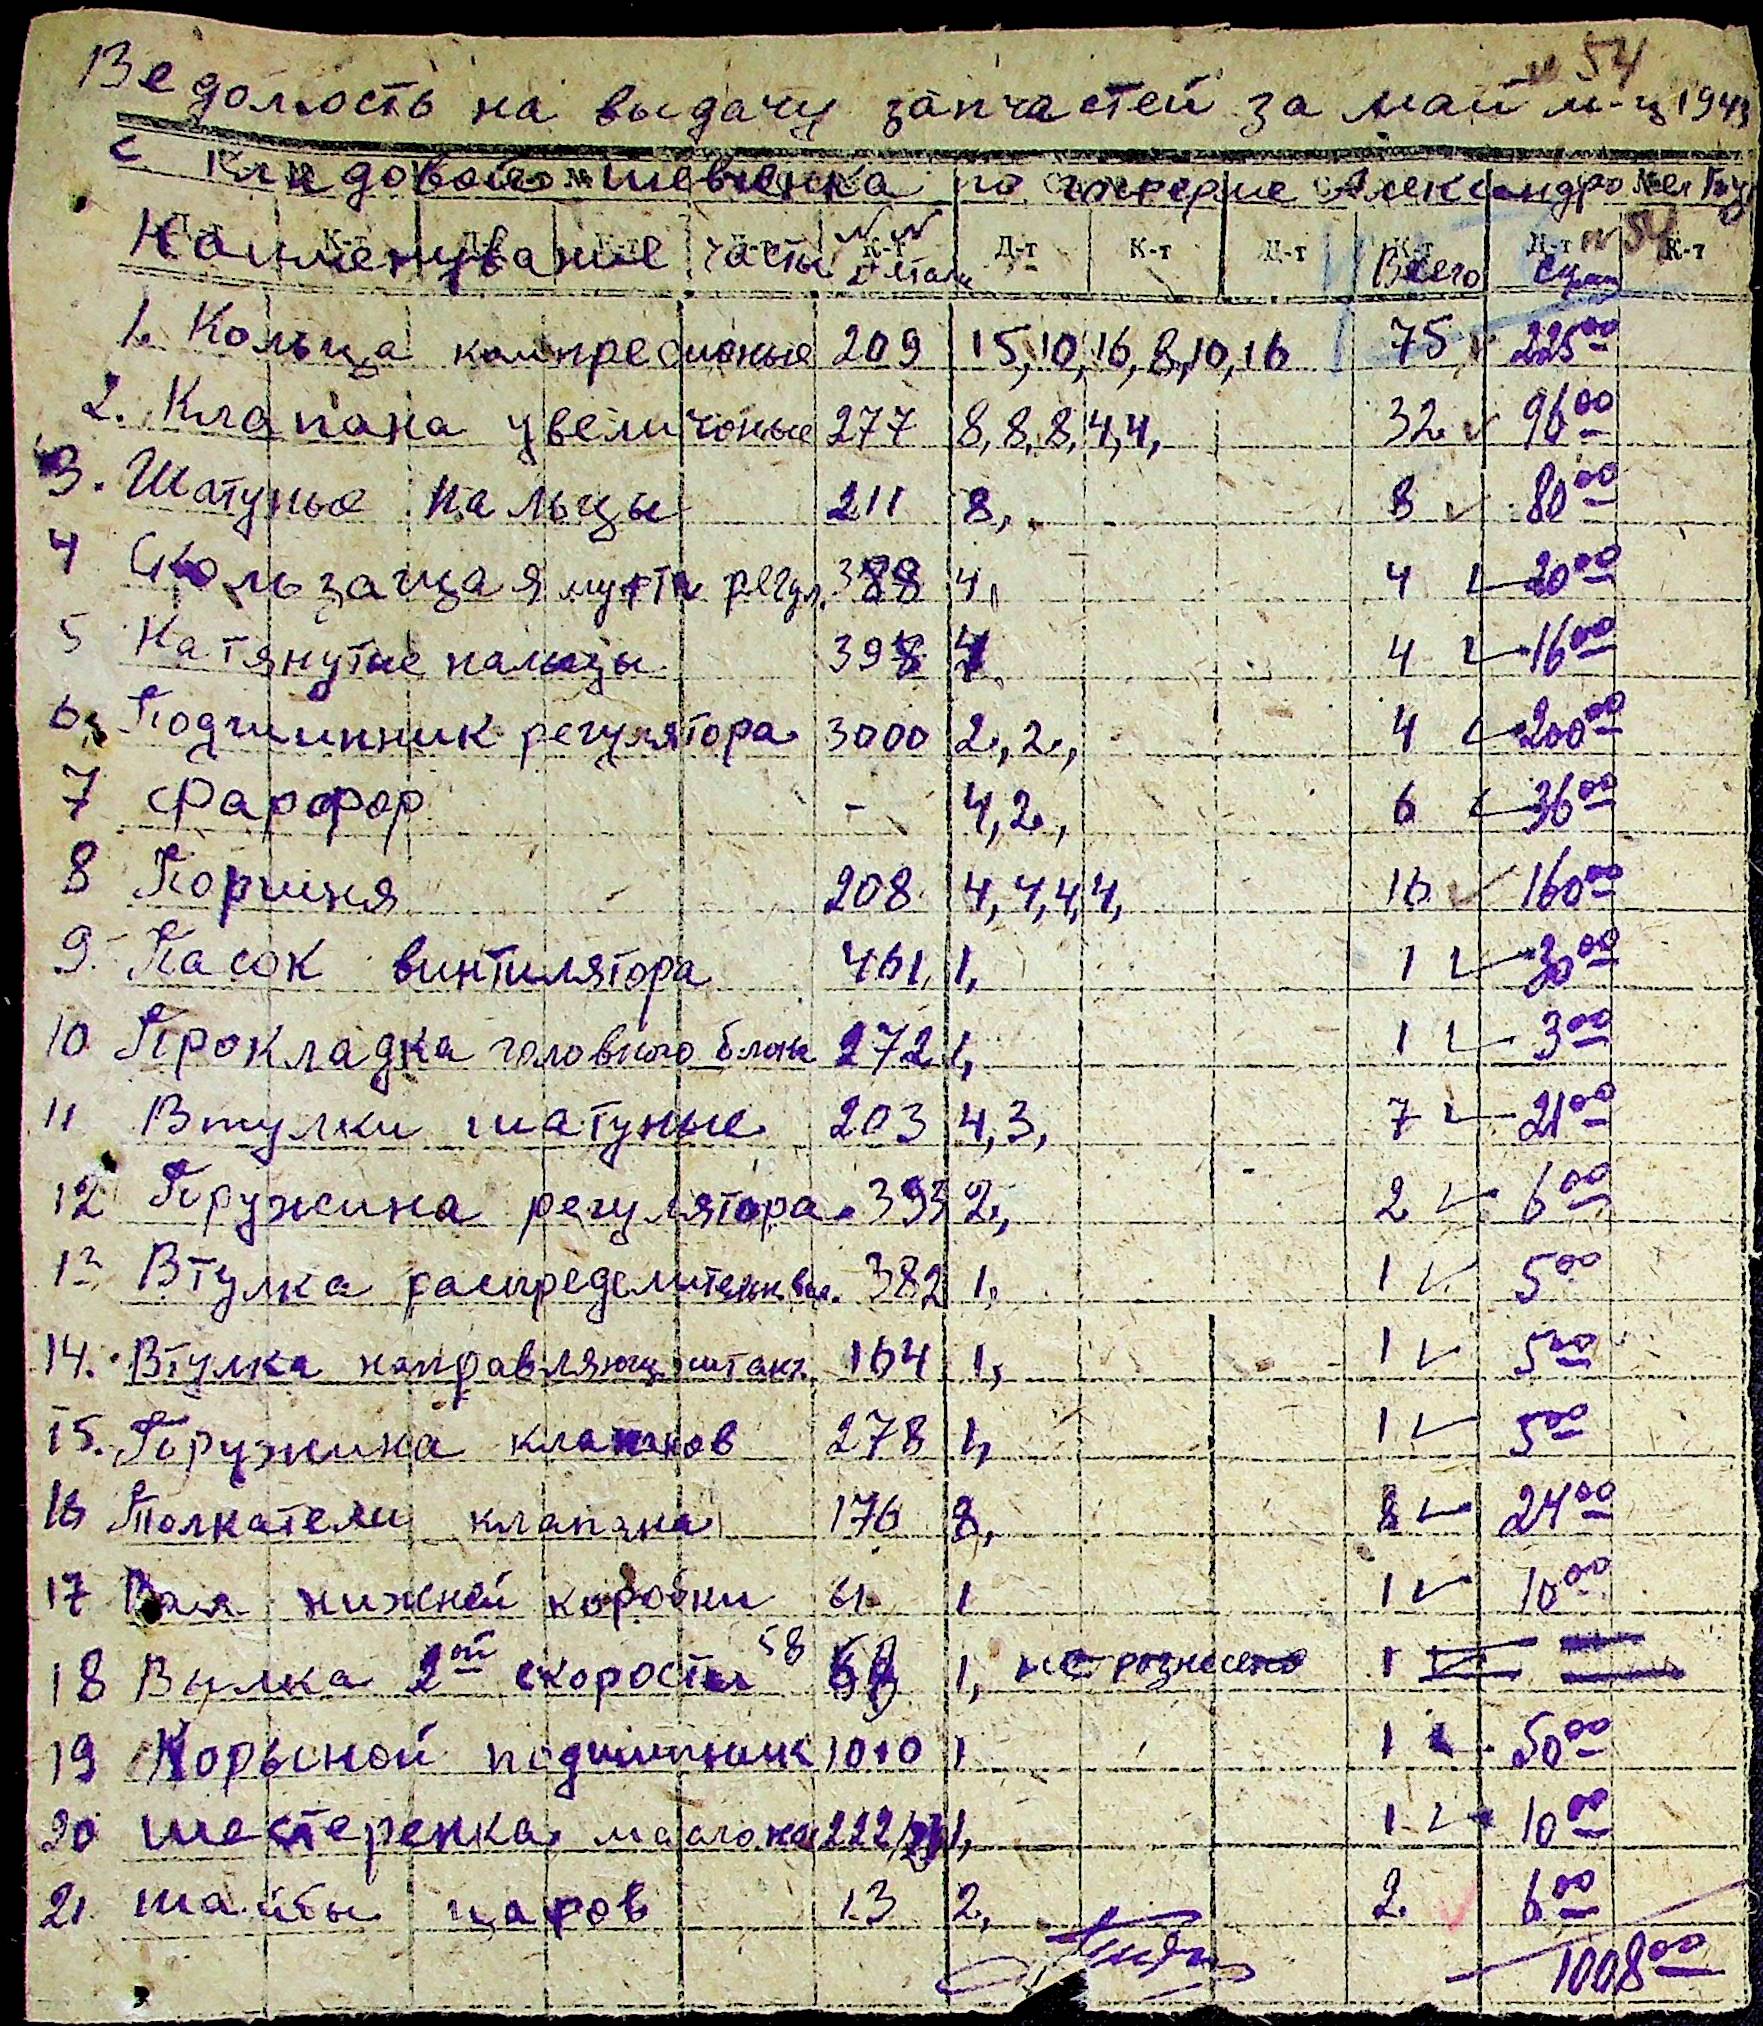 № 54
Ведомость на выдачу запчастей за май м-ц 1943
с кладовой Шевченка по госферме Александро
К-т Д-т К-т Д-т К-т К-т Д-т К-т
№ 54
Наименувание часты №№ детал Всего сум
1. Кольца компресионые 209 15, 10, 16, 8, 10, 16 75 225 00
2. Клапана увеличоные 277 8, 8, 8, 4, 4, 32 96 00
3. Шатуные пальцы 211 8, 8 80 00
4 Скользащая муфта регул. 388 4, 4 20 00
5 Натянутые пальцы 398 4 4 16 00
6 Подшипник регулятора 3000 2, 2, 4 200 00
7 Фарфор - 4, 2, 6 36 00
8 Поршня 208 4, 4, 4, 4, 16 160 00
9. Пасок винтилятора 461 1, 1 30 00
10 Прокладка головного блока 272 1, 1 3 00
11 Втулки шатуные 203 4, 3, 7 21 00
12 Пружина регулятора 393 2, 2 6 00
13 Втулка распределительн. вал. 382 1, 1 5 00
14. Втулка направляющ штанг 164 1, 1 5 00
15. Пружина клапанов 278 1, 1 5 00
16 Толкатели клапана 176 8, 8 24 00
17 Вал нижней коробки 61 1 1 10 00
18 Вилка 2ой скорости 58 1, не рознесено 1
19 Корысной подшипник 1010 1 1 50 00
20 Шестеренка маслонас 222 1, 1 10 00
21 шайбы шаров 13 2, 2 6 00
1008 00